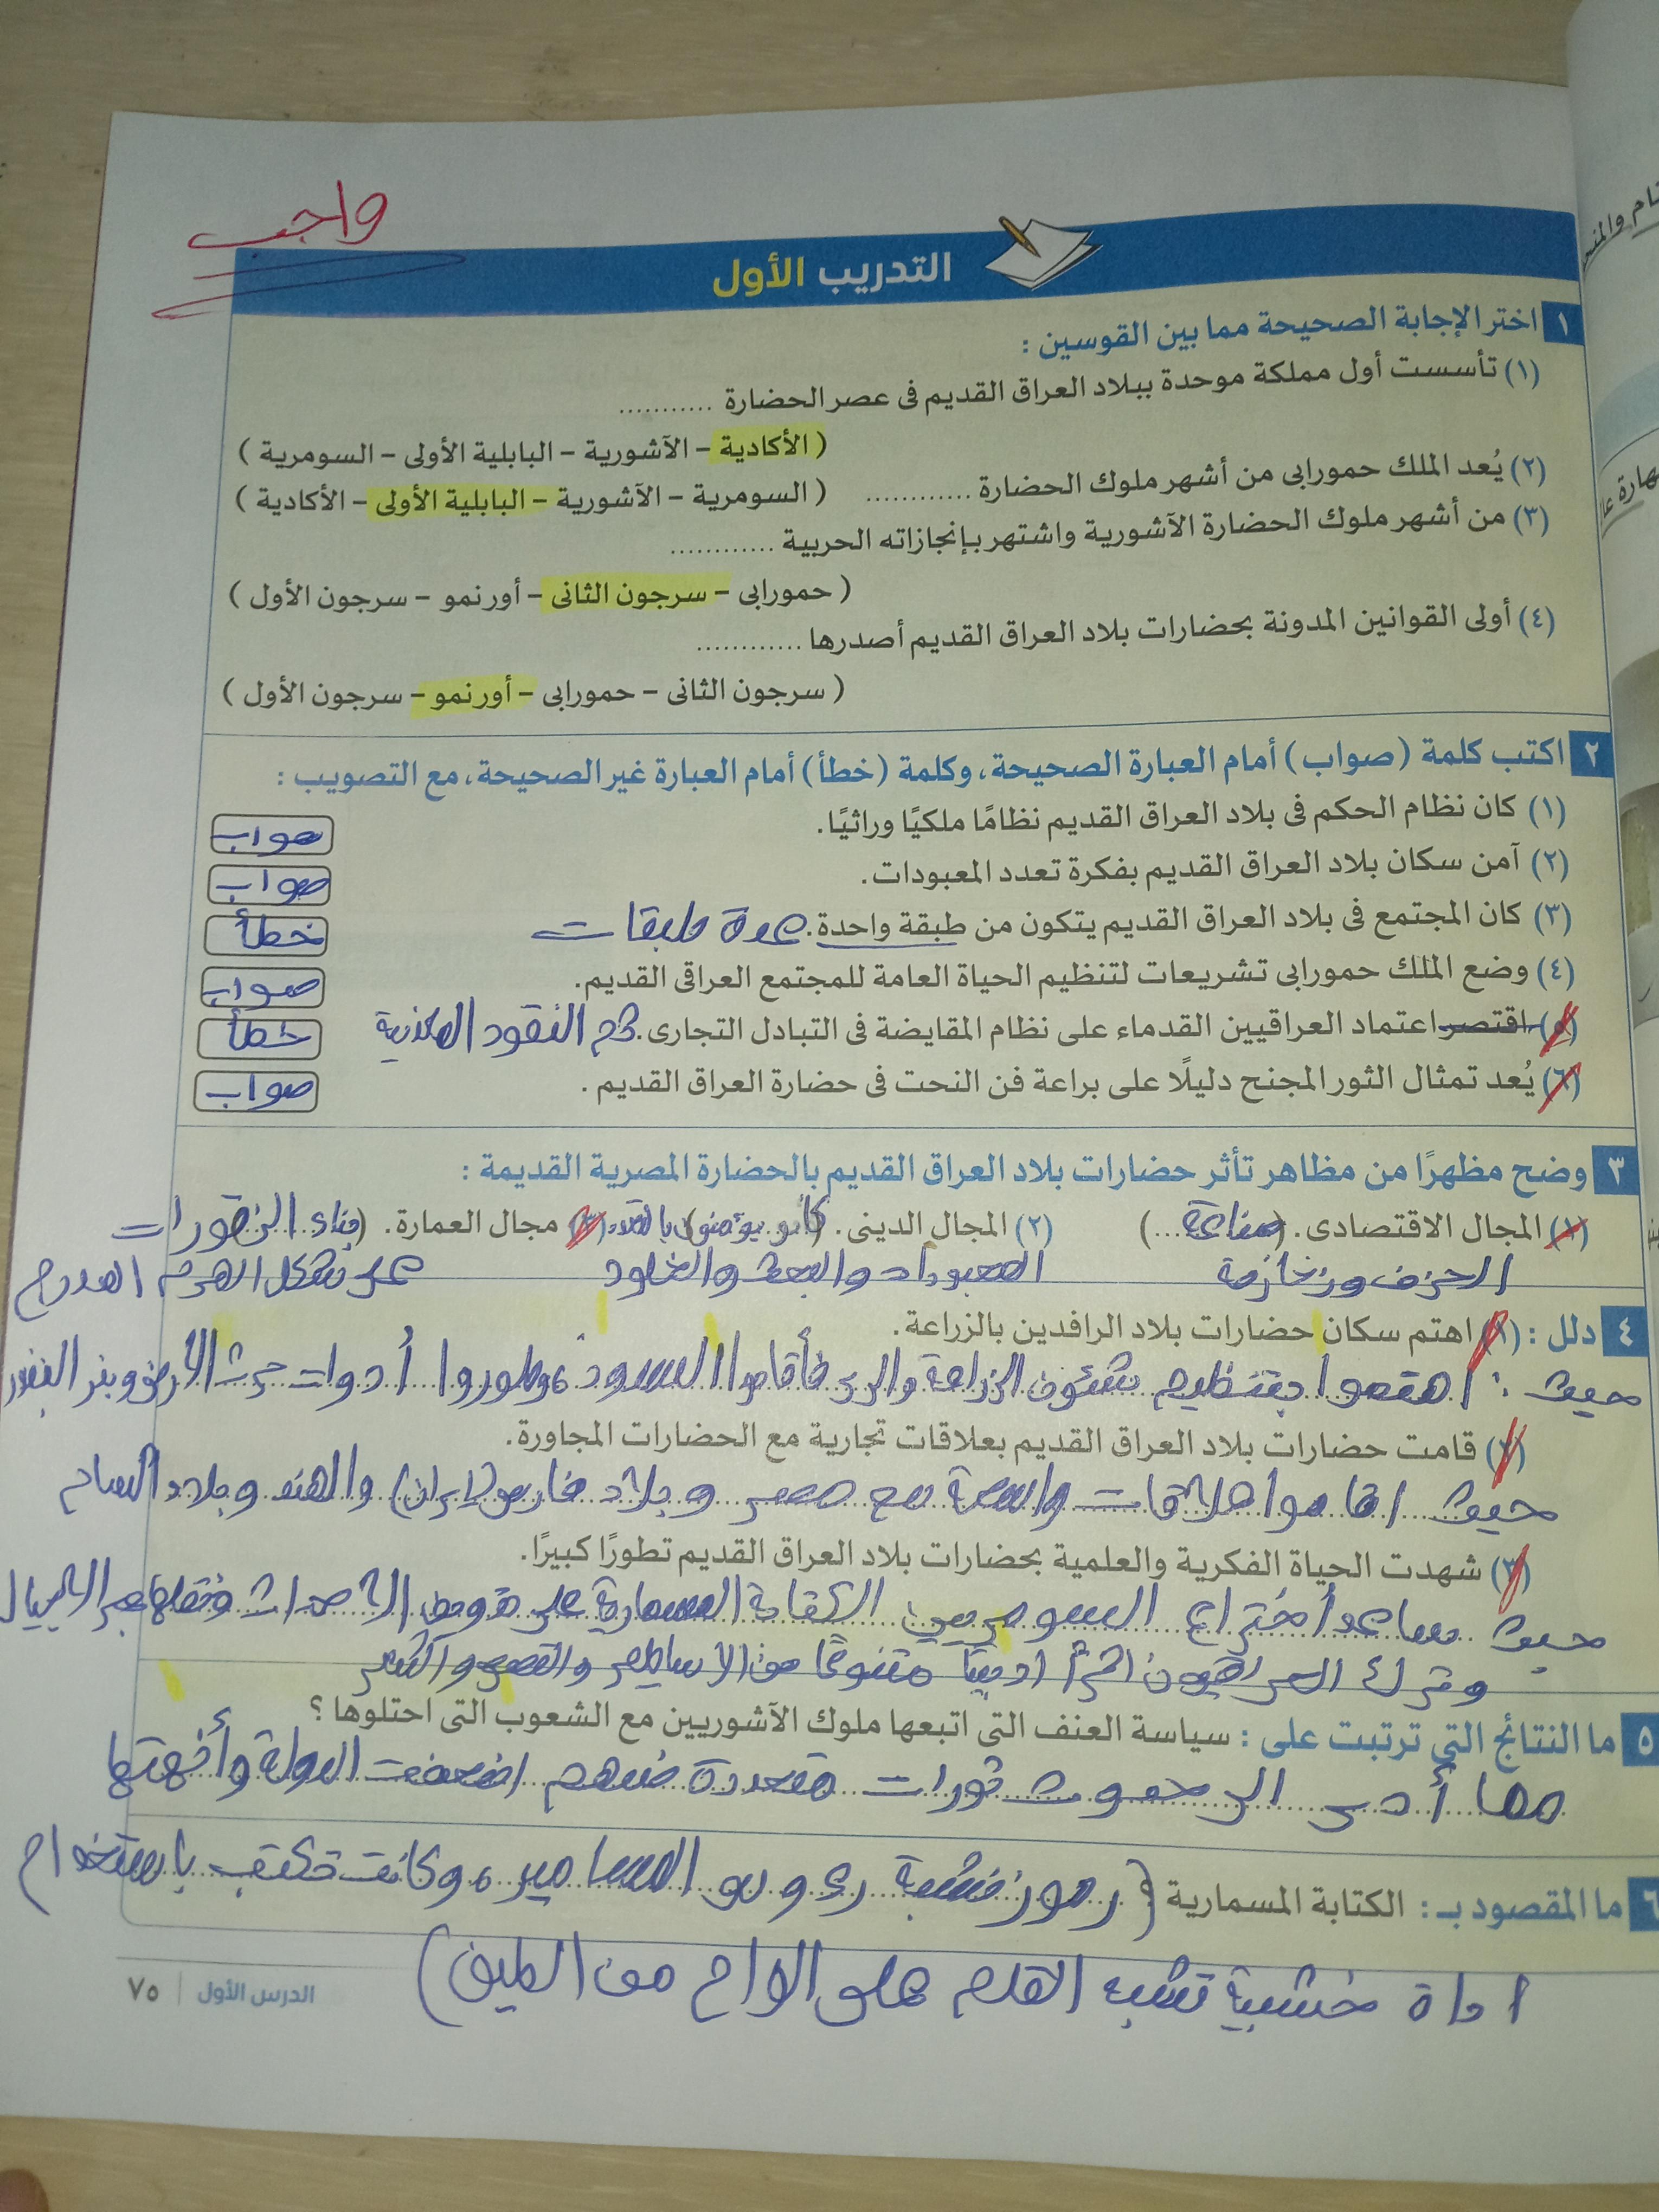 واجب
التدريب الأول
١ اختر الإجابة الصحيحة مما بين القوسين :
(١) تأسست أول مملكة موحدة ببلاد العراق القديم فى عصر الحضارة ............
( الأكادية – الآشورية – البابلية الأولى – السومرية )
(٢) يُعد الملك حمورابى من أشهر ملوك الحضارة ............
( السومرية – الآشورية – البابلية الأولى – الأكادية )
(٣) من أشهر ملوك الحضارة الآشورية واشتهر بإنجازاته الحربية ............
( حمورابى – سرجون الثانى – أورنمو – سرجون الأول )
(٤) أولى القوانين المدونة بحضارات بلاد العراق القديم أصدرها ............
( سرجون الثانى – حمورابى – أورنمو – سرجون الأول )
٢ اكتب كلمة (صواب) أمام العبارة الصحيحة، وكلمة (خطأ) أمام العبارة غير الصحيحة، مع التصويب :
(١) كان نظام الحكم فى بلاد العراق القديم نظامًا ملكيًا وراثيًا. صواب
(٢) آمن سكان بلاد العراق القديم بفكرة تعدد المعبودات. صواب
(٣) كان المجتمع فى بلاد العراق القديم يتكون من طبقة واحدة. عدة طبقات خطأ
(٤) وضع الملك حمورابى تشريعات لتنظيم الحياة العامة للمجتمع العراقى القديم. صواب
(٥) اقتصر اعتماد العراقيين القدماء على نظام المقايضة فى التبادل التجارى. ثم النقود المعدنية خطأ
(٦) يُعد تمثال الثور المجنح دليلًا على براعة فن النحت فى حضارة العراق القديم. صواب
٣ وضح مظهرًا من مظاهر تأثر حضارات بلاد العراق القديم بالحضارة المصرية القديمة :
(١) المجال الاقتصادى. (صناعة) (٢) المجال الدينى. (كانو يؤمنون بتعدد (٣) مجال العمارة. (بناء الزقورات
الخزف وزخارفه المعبودات والبعث والخلود على شكل الهرم المدرج
٤ دلل : (١) اهتم سكان حضارات بلاد الرافدين بالزراعة.
حيث : اهتموا بتنظيم شئون الزراعة والرى فأقاموا السدود، وطوروا أدوات حرث الأرض وبذر البذور
(٢) قامت حضارات بلاد العراق القديم بعلاقات تجارية مع الحضارات المجاورة.
حيث اقاموا علاقات واسعة مع مصر وبلاد فارس (إيران) والهند وبلاد الشام
(٣) شهدت الحياة الفكرية والعلمية بحضارات بلاد العراق القديم تطورًا كبيرًا.
حيث ساعد أختراع السومريين الكتابة المسمارية على تدوين الاحداث ونقلها عبر الاجيال
وترك العراقيون اثرًا ادبيًا متنوعًا من الاساطير والقصص والشعر
٥ ما النتائج التى ترتبت على : سياسة العنف التى اتبعها ملوك الآشوريين مع الشعوب التى احتلوها ؟
مما أدى الى حدوث ثورات متعددة ضدهم اضعفت الدولة وأنهتها
٦ ما المقصود بـ : الكتابة المسمارية ؟ (رموز خشبة رؤوس المسامير، وكانت تكتب باستخدام
اداة خشبية تشبه القلم على الواح من الطين)
الدرس الأول | ٧٥